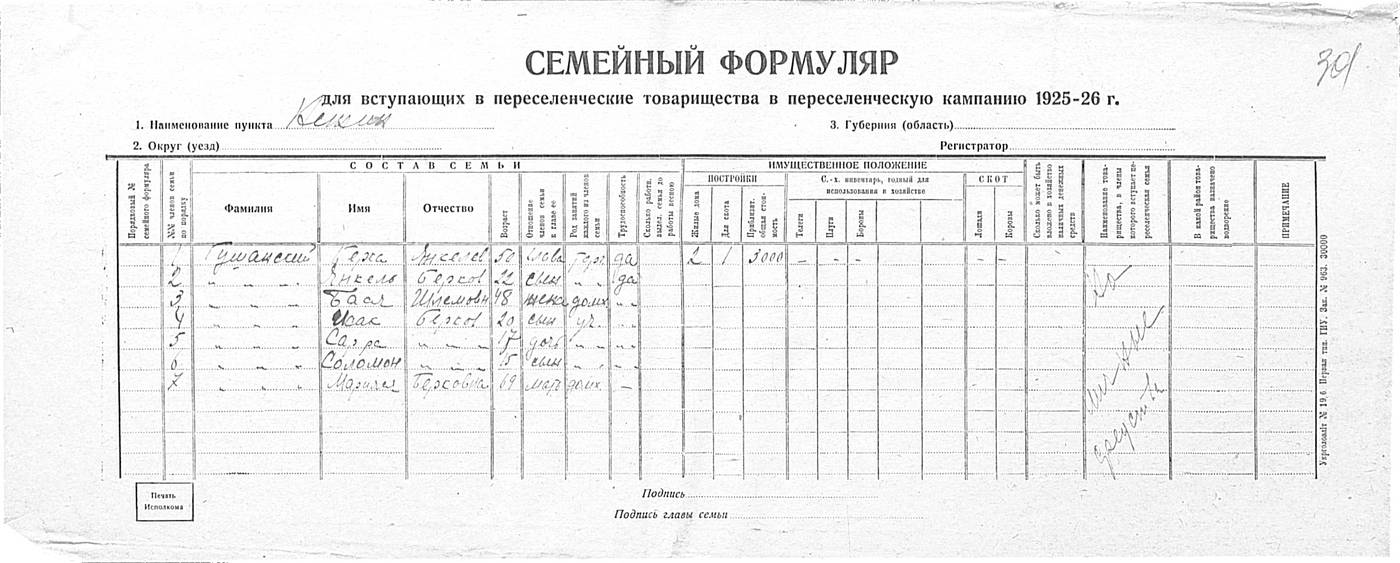 СЕМЕЙНЫЙ ФОРМУЛЯР
301
для вступающих в переселенческие товарищества в переселенческую кампанию 1925-26 г.
1. Наименование пункта
3. Губерния (область)
2. Округ (уезд)
Регистратор
СОСТАВ СЕМЬИ
ИМУЩЕСТВЕННОЕ ПОЛОЖЕНИЕ
Порядковый № семейного формуляра
№№ членов семьи по порядку
Фамилия
Имя
Отчество
Возраст
Отношение членов семьи к главе ее
Род занятий каждого из членов семьи
Трудоспособность
Сколько работн. выдел. семья до работы весною
ПОСТРОЙКИ
Жилые дома
Для скота
Приблизит. общая стоимость
С.-х. инвентарь, годный для использования в хозяйстве
Телеги
Плуги
Бороны
СКОТ
Лошади
Коровы
Сколько может быть вложено в хозяйство наличных денежных средств
Наименование товарищества, в члены которого вступает переселенческая семья
В какой район товарищества назначено водворение
ПРИМЕЧАНИЕ
1 Гушанский Янкелев 50 глава Торг да 2 1 3000 – – – – –
2 " " " Янкель Берков 22 сын " " да
3 " " " Бася Шлемовн 48 жена домх " "
4 " " " Исак Берков 20 сын уч. " "
5 " " " Сарра " " " 17 дочь " " " "
6 " " " Соломон " " " 15 сын " " " "
7 " " " Берковна 69 мать домх –
Печать Исполкома
Подпись
Подпись главы семьи
Укрголовліт № 19,6 Первая тип. ТИУ. Зак. № 963. 30000